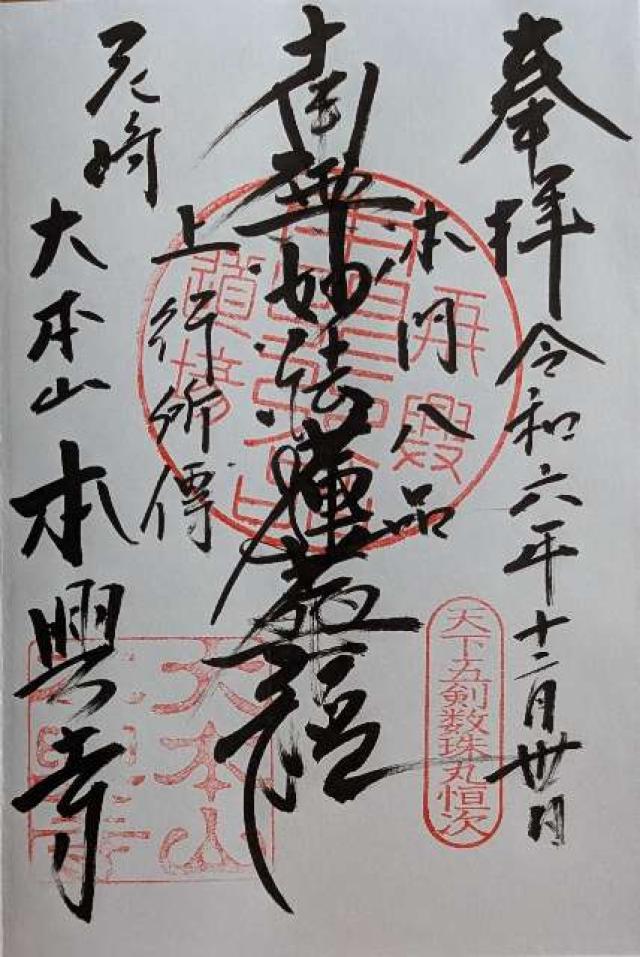 奉拝 令和六年十二月卅日
本門八品
南無妙法蓮華経
上行所傳
尼崎
大本山 本興寺
天下五剣数珠丸恒次
大本山
本興寺